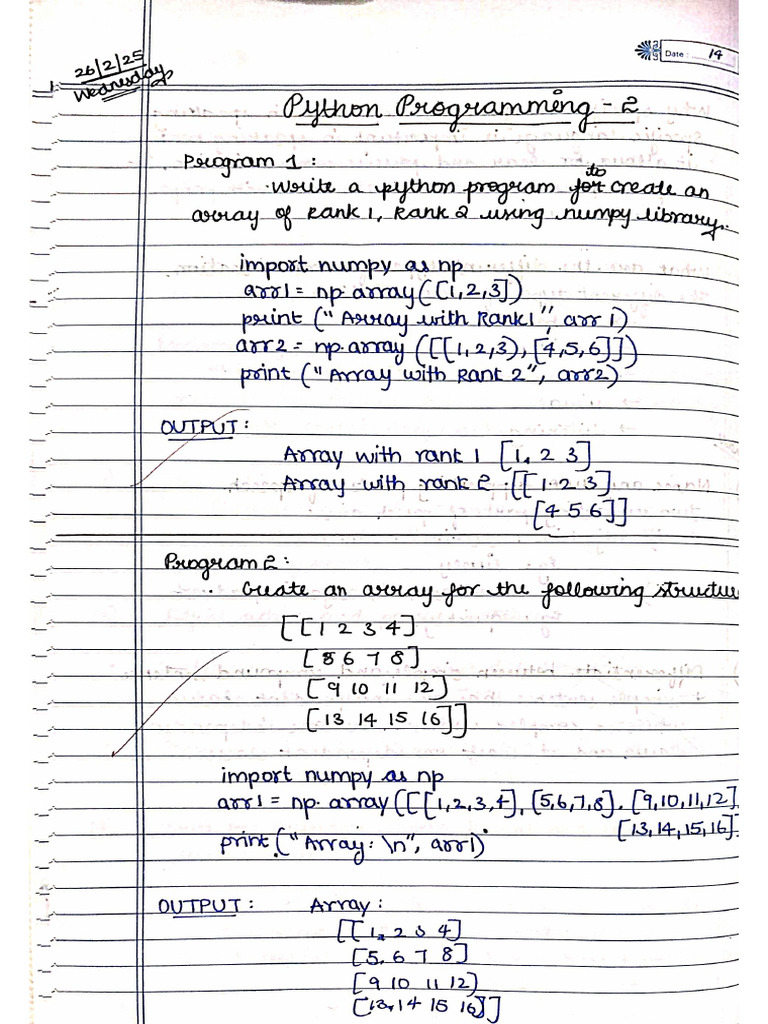 26/2/25
Wednesday
Date : 14
Python Programming - 2
Program 1 :
to
Write a python program for create an
array of Rank 1, Rank 2 using numpy library.
import numpy as np
arr1 = np.array([1,2,3])
print ("Array with Rank1", arr1)
arr2 = np.array([[1,2,3),[4,5,6]])
print ("Array with Rank 2", arr2)
OUTPUT :
Array with rank 1 [1, 2 3]
Array with rank 2 : [[1 2 3]
[4 5 6]]
Program 2 :
Create an array for the following structu
[[1 2 3 4]
[5 6 7 8]
[9 10 11 12]
[13 14 15 16]]
import numpy as np
arr1 = np.array([[[1,2,3,4], [5,6,7,8], [9,10,11,12]
[13,14,15,16]
print ("Array: \n", arr1)
OUTPUT : Array :
[[1, 2 3 4]
[5, 6 7 8]
[9 10 11 12]
[13, 14 15 16]]